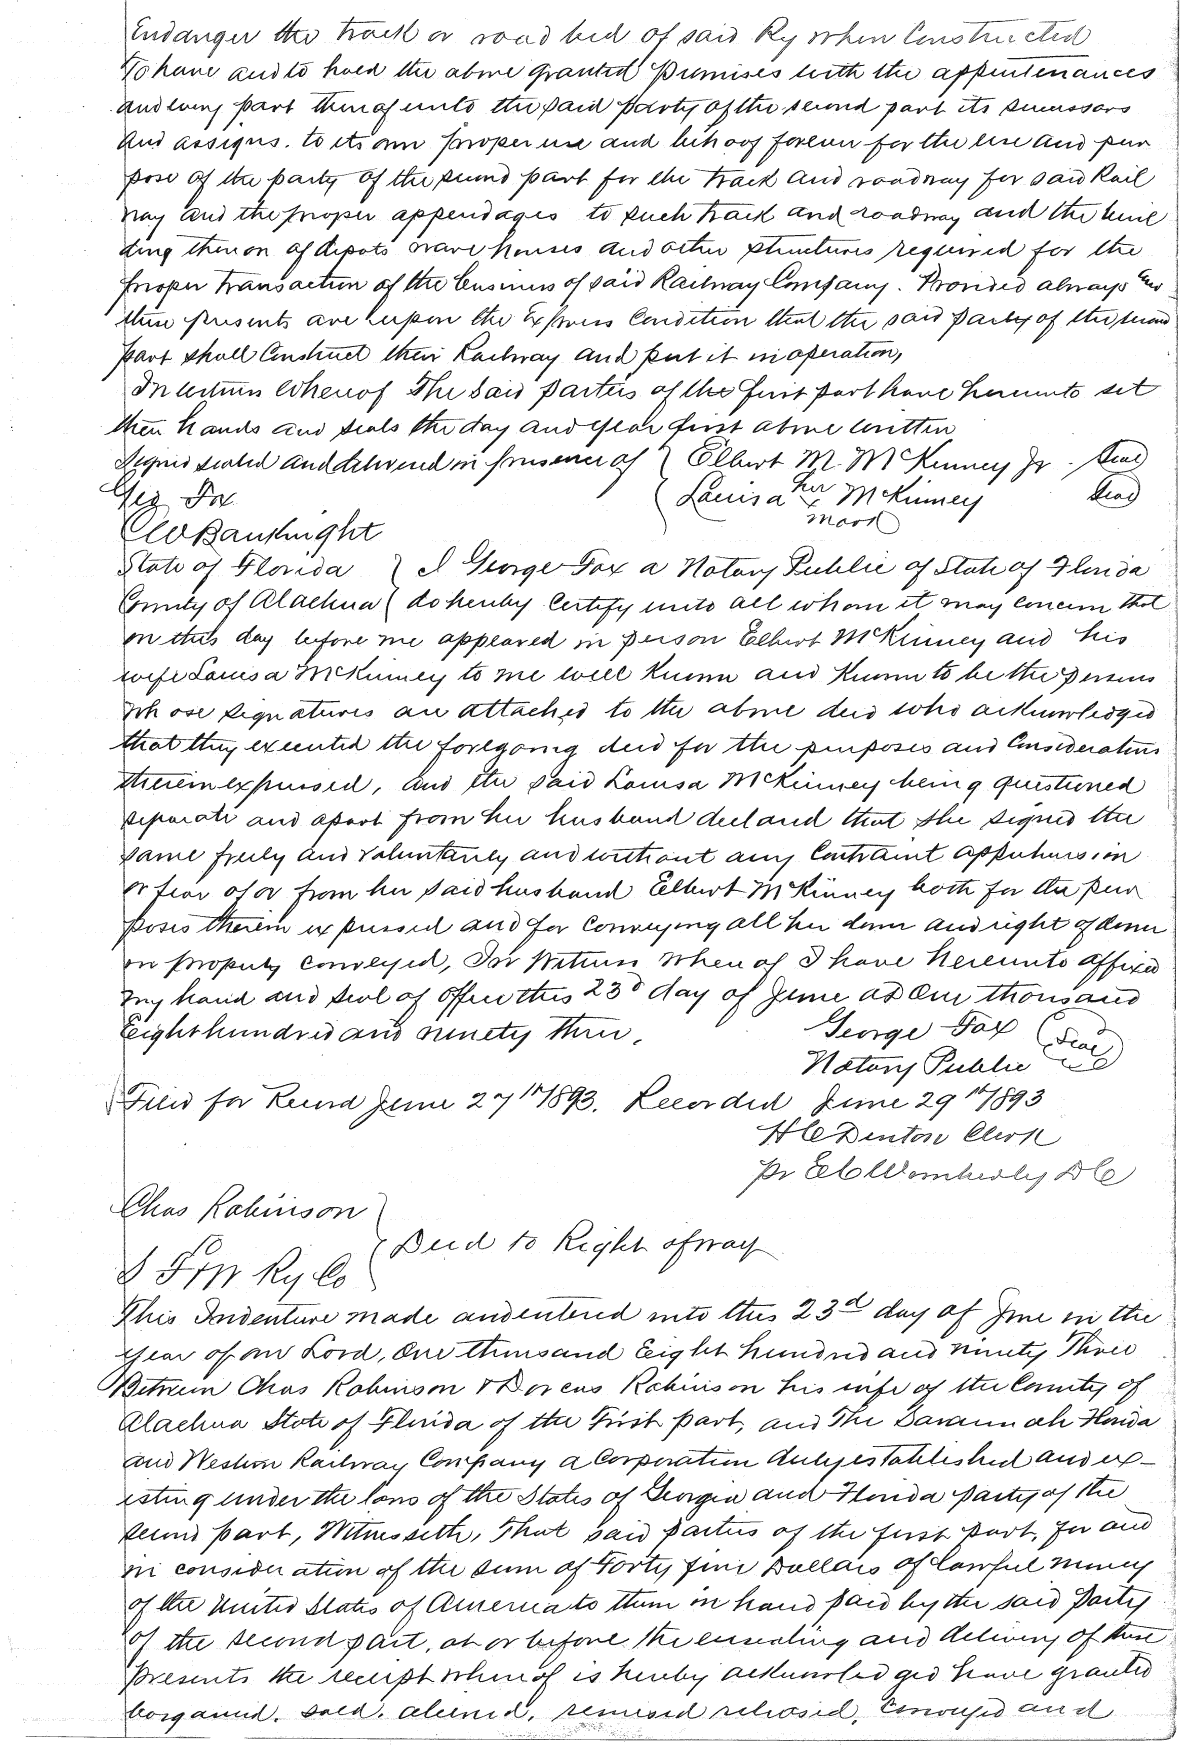 Endanger the track or road bed of said Ry when Constructed
To have and to hold the above granted Premises with the appurtenances
and every part thereof unto the said party of the second part its successors
and assigns. to its own proper use and behoof forever for the use and pur
pose of the party of the second part for the track and roadway for said Rail
way and the proper appendages to such track and roadway and the buil
ding thereon of depots ware houses and other structures required for the
proper transaction of the business of said Railway Company. Provided always and
these presents are upon the Express Condition that the said party of the second
part shall Construct their Railway and put it in operation,
In witness Whereof The Said Parties of the first part have hereunto set
their hands and seals the day and year first above written
Signed sealed and delivered in presence of } Elbert M. McKenney Jr. Seal
Geo Fox { Louisa her x mark McKinney Seal
C W Bauknight
State of Florida } I George Fox a Notary Public of State of Florida
County of Alachua { do hereby Certify unto all whom it may concern that
on this day before me appeared in person Elbert McKinney and his
wife Louisa McKinney to me well known and known to be the persons
whose signatures are attached to the above deed who acknowledged
that they executed the foregoing deed for the purposes and Consideration
therein expressed, and the said Louisa McKinney being questioned
separate and apart from her husband declared that she signed the
same freely and voluntarily and without any Contraint apprehension
or fear of or from her said husband Elbert McKinney both for the pur
poses therein expressed and for conveying all her dower and right of dower
in property conveyed, In Witness Whereof I have hereunto affixed
my hand and seal of office this 23d day of June AD One thousand
Eight hundred and ninety three.
George Fox (Seal)
Notary Public
Filed for Record June 27th 1893. Recorded June 29th 1893
H C Denton Clerk
Pr E C Womberly D C
Chas Robinson }
{ Deed to Right of way
S F & W Ry Co
This Indenture made and entered into this 23d day of June in the
year of our Lord, One thousand Eight hundred and ninety Three
Between Chas Robinson & Dorcas Robinson his wife of the County of
Alachua State of Florida of the First part, and The Savannah Florida
and Western Railway Company a Corporation duly established and ex-
isting under the laws of the States of Georgia and Florida party of the
second part, Witnesseth, That said parties of the first part, for and
in consideration of the sum of Forty five Dollars of lawful money
of the United States of America to them in hand paid by the said Party
of the second part, at or before the ensealing and delivery of these
presents the receipt whereof is hereby acknowledged have granted
bargained. sold. aliened, remised released, conveyed and